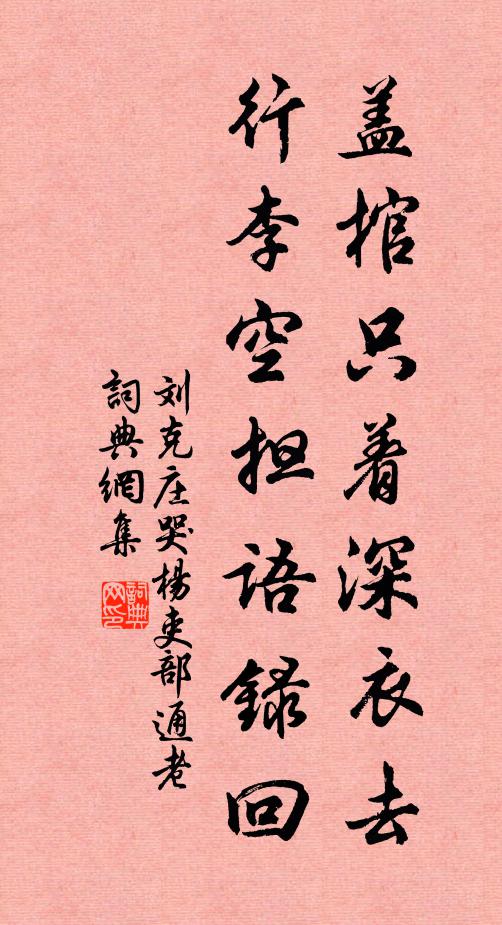 盖棺只着深衣去
行李空担语録回
刘克庄哭杨吏部通老
詞典網集
詞典网印